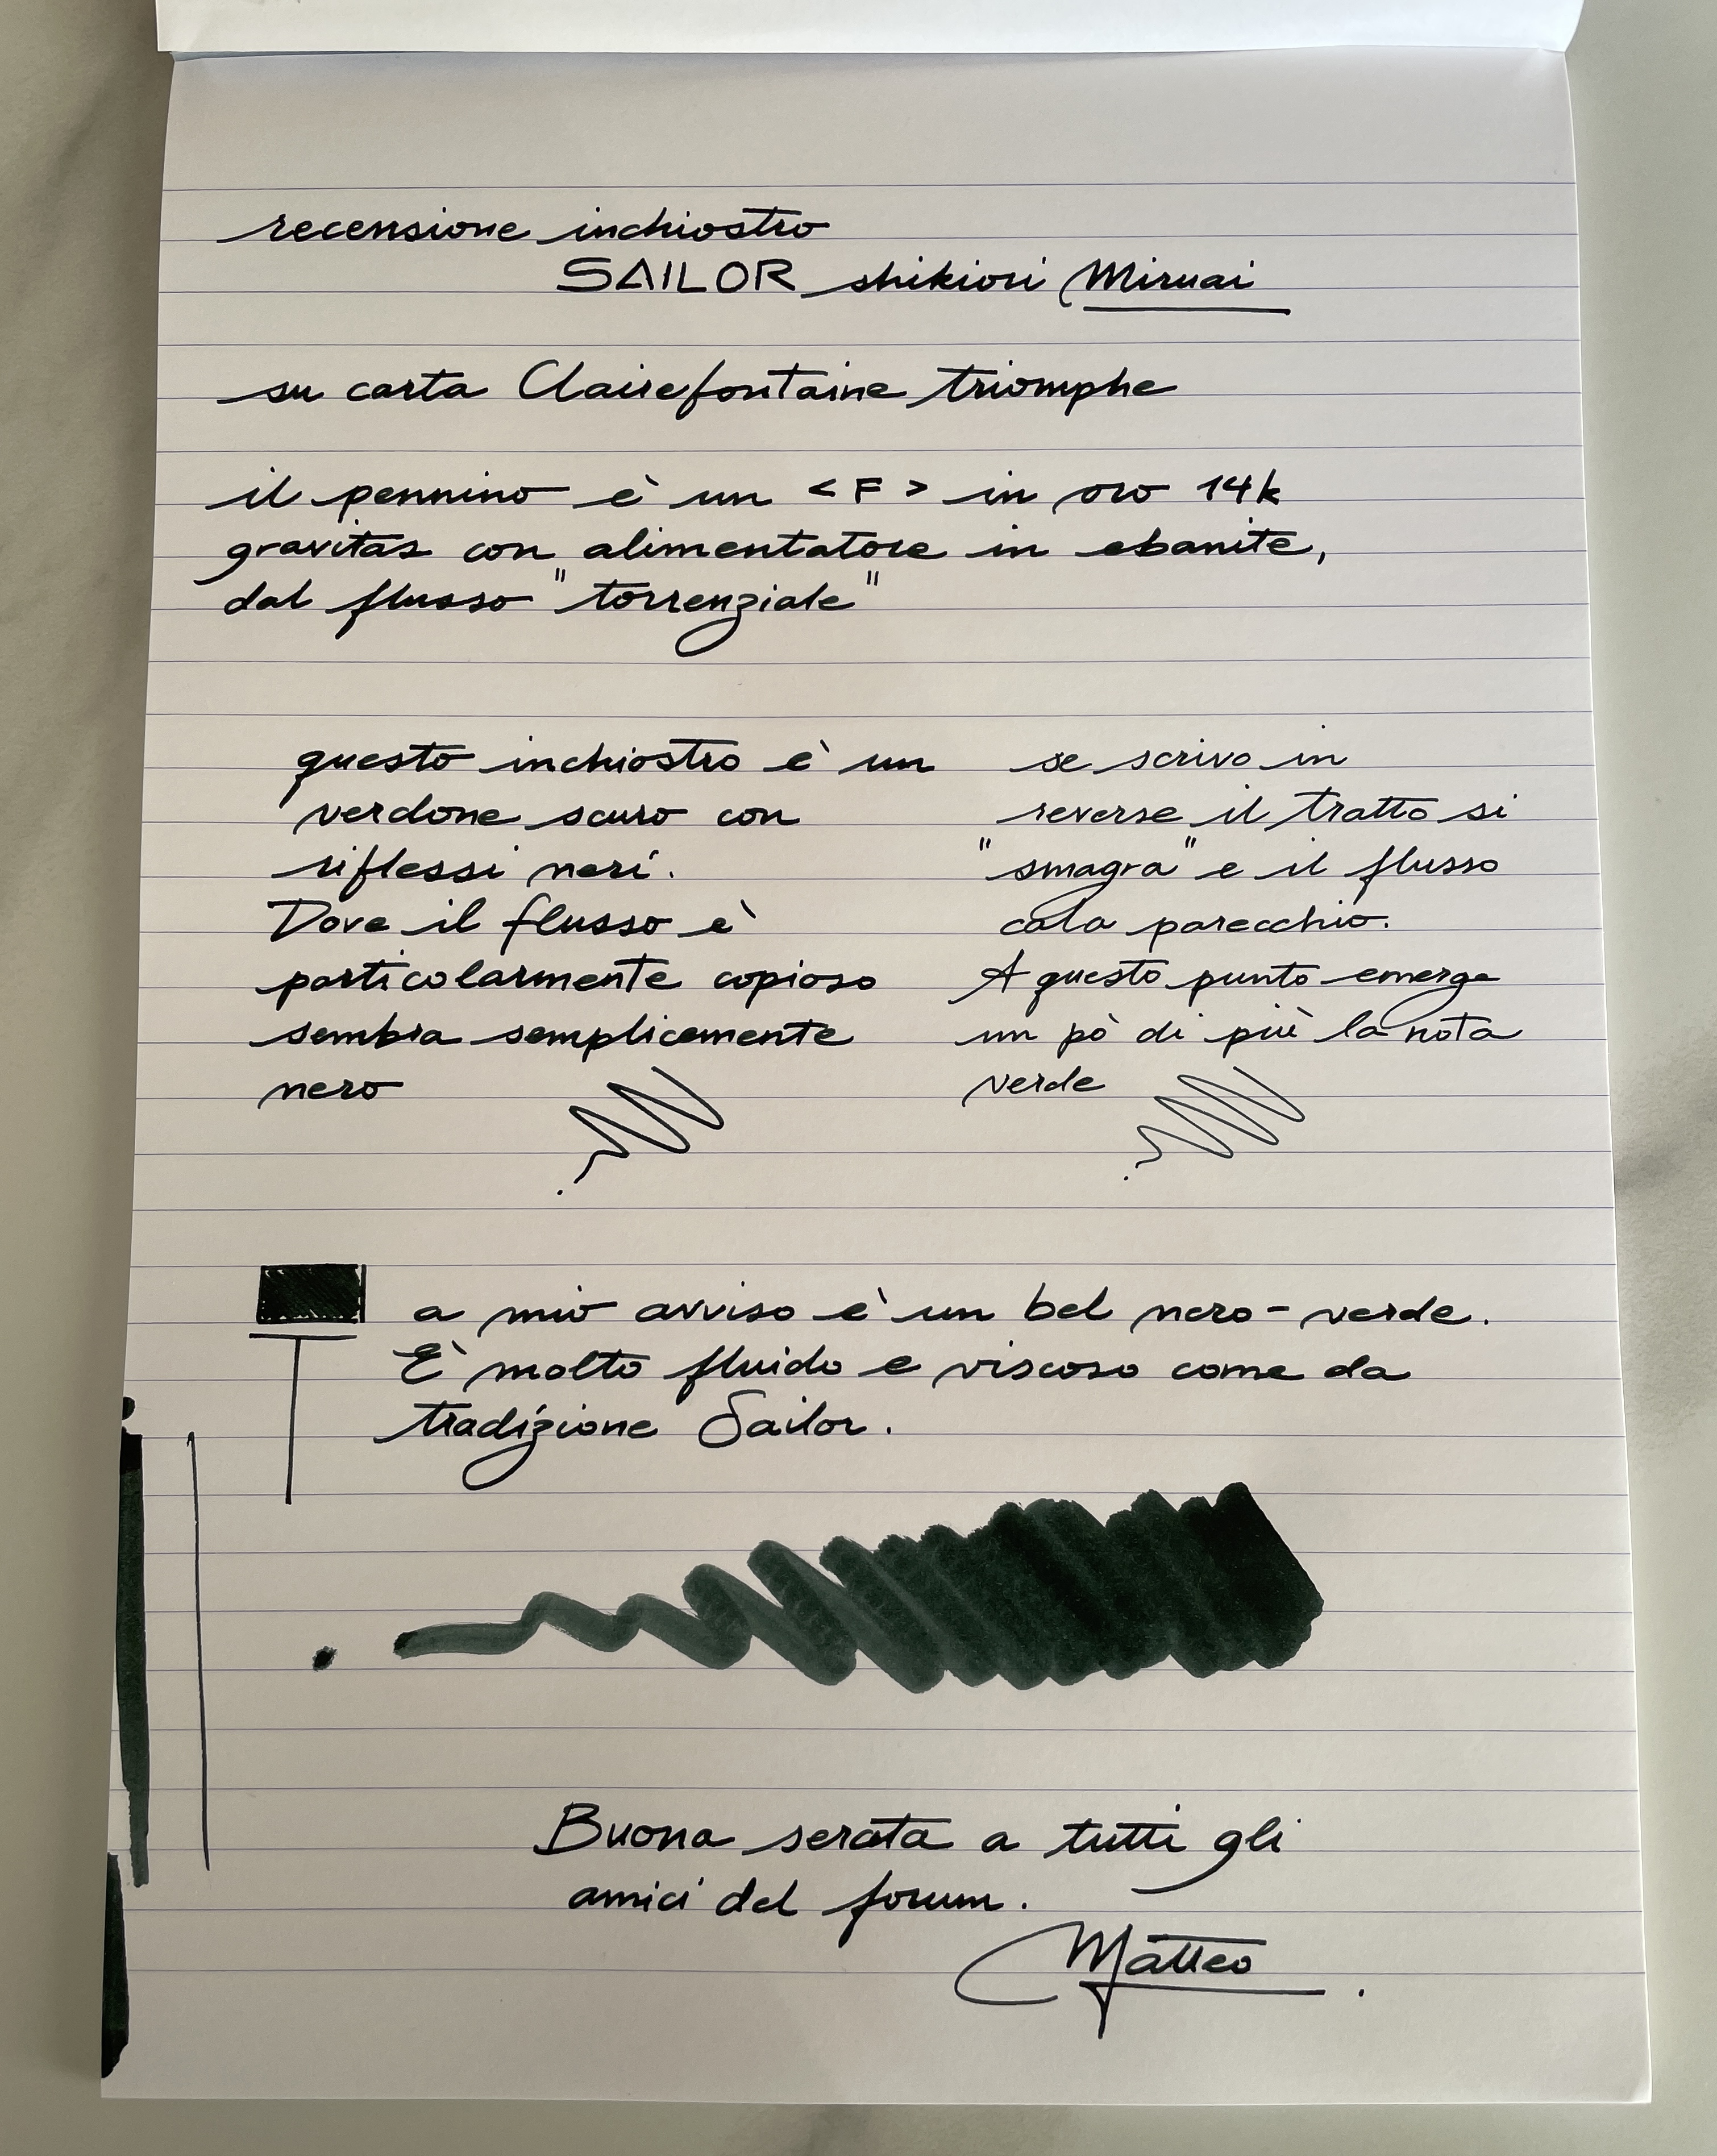 recensione inchiostro
SAILOR shikiori Miruai
su carta Clairefontaine triomphe
il pennino è un <F> in oro 14k
gravitas con alimentatore in ebanite,
dal flusso "torrenziale"
questo inchiostro è un
verdone scuro con
riflessi neri.
Dove il flusso è
particolarmente copioso
sembra semplicemente
nero
se scrivo in
reverse il tratto si
"smagra" e il flusso
cala parecchio.
A questo punto emerge
un pò di più la nota
verde
a mio avviso è un bel nero-verde.
È molto fluido e viscoso come da
tradizione Sailor.
Buona serata a tutti gli
amici del forum.
Matteo.